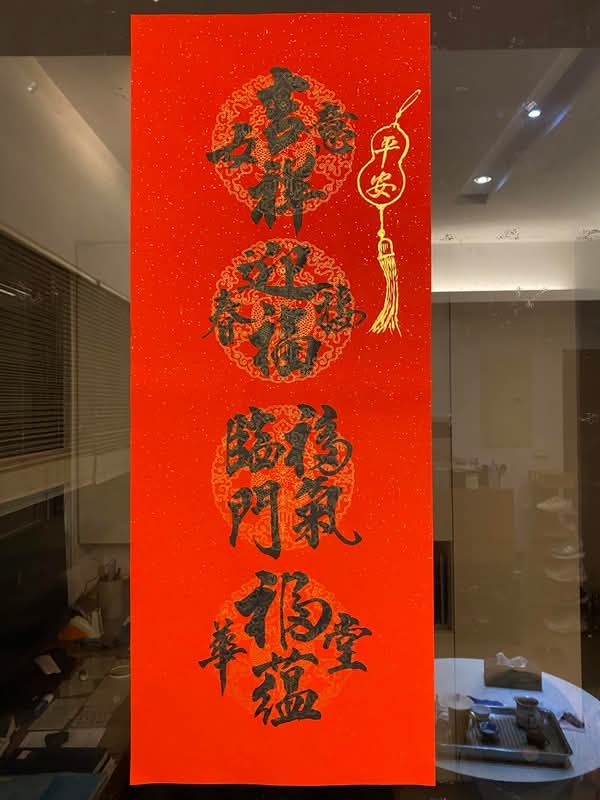 平安
吉祥如意
迎春接福
福氣臨門
福蕴華堂